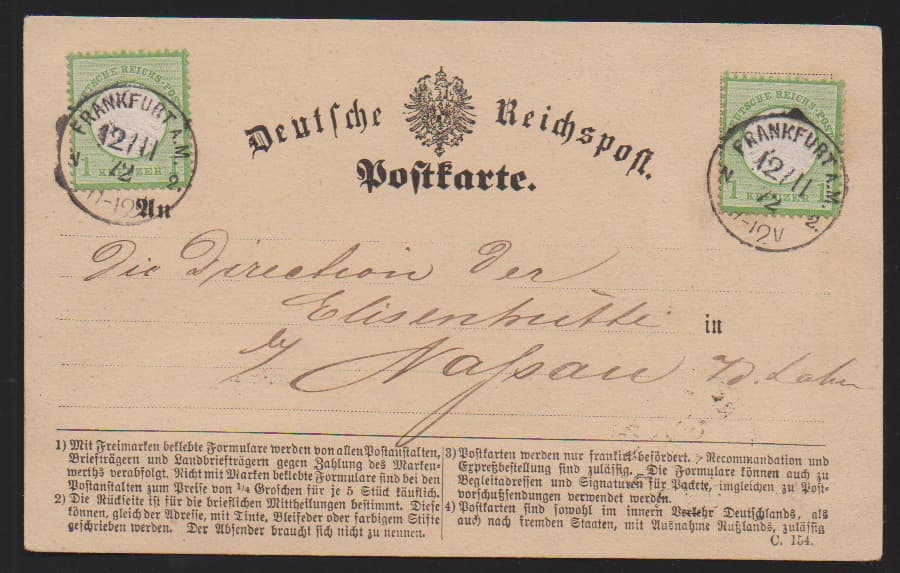 DEUTSCHE REICHS-POST
1 KREUZER
FRANKFURT A.M.
12/11
72
N 2.
11-12V
DEUTSCHE REICHS-POST
1 KREUZER 1
FRANKFURT A.M.
12/11
72
N 2.
11-12V
Deutsche Reichspost.
Postkarte.
An
Die Direction der
Elisenhütte in
b/ Nassau a/d. Lahn
1) Mit Freimarken beklebte Formulare werden von allen Postanstalten,
Briefträgern und Landbriefträgern gegen Zahlung des Marken-
werths verabfolgt. Nicht mit Marken beklebte Formulare sind bei den
Postanstalten zum Preise von 1/4 Groschen für je 5 Stück käuflich.
2) Die Rückseite ist für die brieflichen Mittheilungen bestimmt. Diese
können, gleich der Adresse, mit Tinte, Bleifeder oder farbigem Stifte
geschrieben werden. Der Absender braucht sich nicht zu nennen.
3) Postkarten werden nur frankirt befördert. Recommandation und
Expreßbestellung sind zulässig. Die Formulare können auch zu
Begleitadressen und Signaturen für Packete, imgleichen zu Post-
vorschußsendungen verwendet werden.
4) Postkarten sind sowohl im innern Verkehr Deutschlands, als
auch nach fremden Staaten, mit Ausnahme Rußlands, zulässig
C. 154.